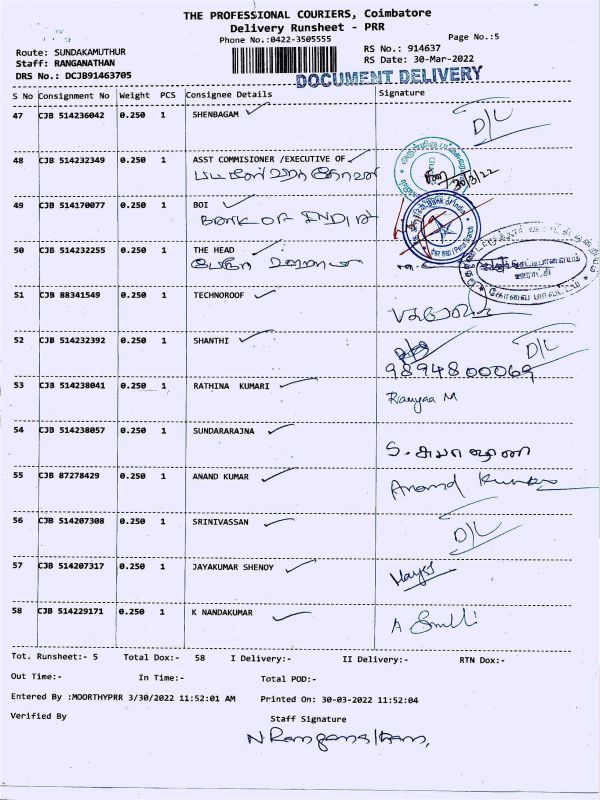 THE PROFESSIONAL COURIERS, Coimbatore
Delivery Runsheet - PRR
Phone No.:0422-3505555
Page No.:5
Route: SUNDAKAMUTHUR
RS No.: 914637
Staff: RANGANATHAN
RS Date: 30-Mar-2022
DRS No.: DCJB91463705
DOCUMENT DELIVERY
S No Consignment No Weight PCS Consignee Details Signature
47 CJB 514236042 0.250 1 SHENBAGAM
D/L
48 CJB 514232349 0.250 1 ASST COMMISIONER /EXECUTIVE OF
30/3/22
49 CJB 514170077 0.250 1 BOI
BANK OF INDIA
50 CJB 514232255 0.250 1 THE HEAD
51 CJB 88341549 0.250 1 TECHNOROOF
52 CJB 514232392 0.250 1 SHANTHI
D/L
9894800069
53 CJB 514238041 0.250 1 RATHINA KUMARI
Ramyaa M
54 CJB 514238057 0.250 1 SUNDARARAJNA
55 CJB 87278429 0.250 1 ANAND KUMAR
Anand Kumar
56 CJB 514207308 0.250 1 SRINIVASSAN
D/L
57 CJB 514207317 0.250 1 JAYAKUMAR SHENOY
58 CJB 514229171 0.250 1 K NANDAKUMAR
Tot. Runsheet:- 5 Total Dox:- 58 I Delivery:- II Delivery:- RTN Dox:-
Out Time:- In Time:- Total POD:-
Entered By :MOORTHYPRR 3/30/2022 11:52:01 AM Printed On: 30-03-2022 11:52:04
Verified By Staff Signature
N Ranganathan,